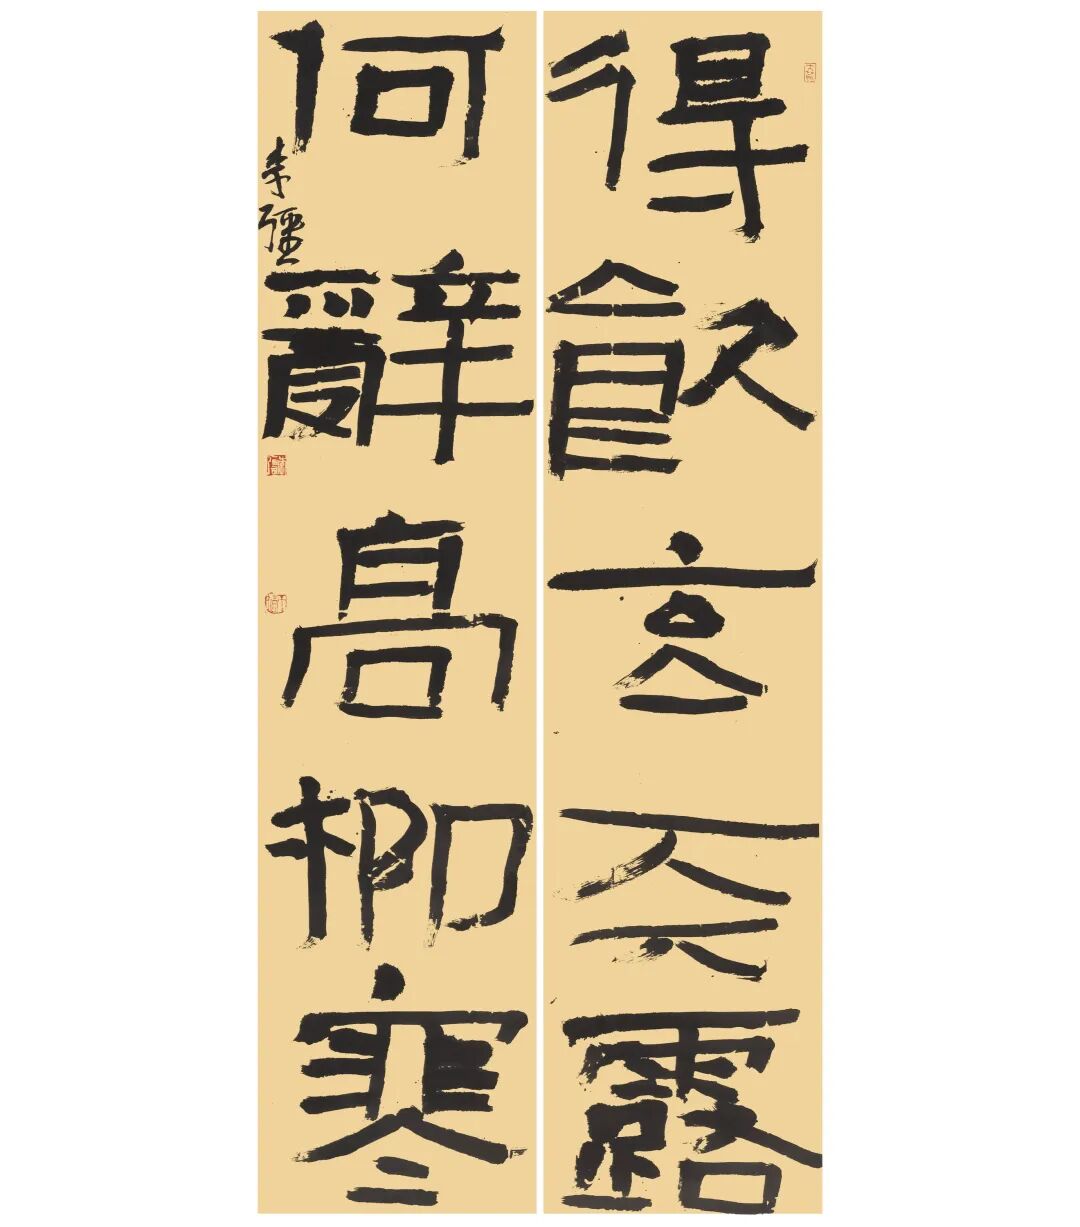 得飲玄天露
何辭高柳寒
李彊